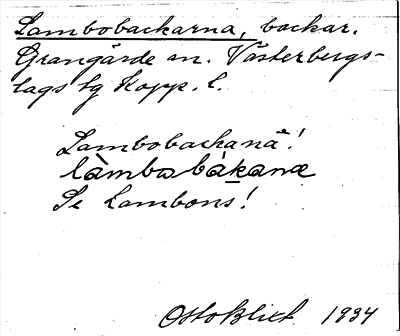 Lambobackarna, backar.
Grangärde sn. Västerbergs-
lags tg Kopp. l.
Lambobackanä!
làmbobàkanæ
Se Lambons!
Otto Blixt 1934